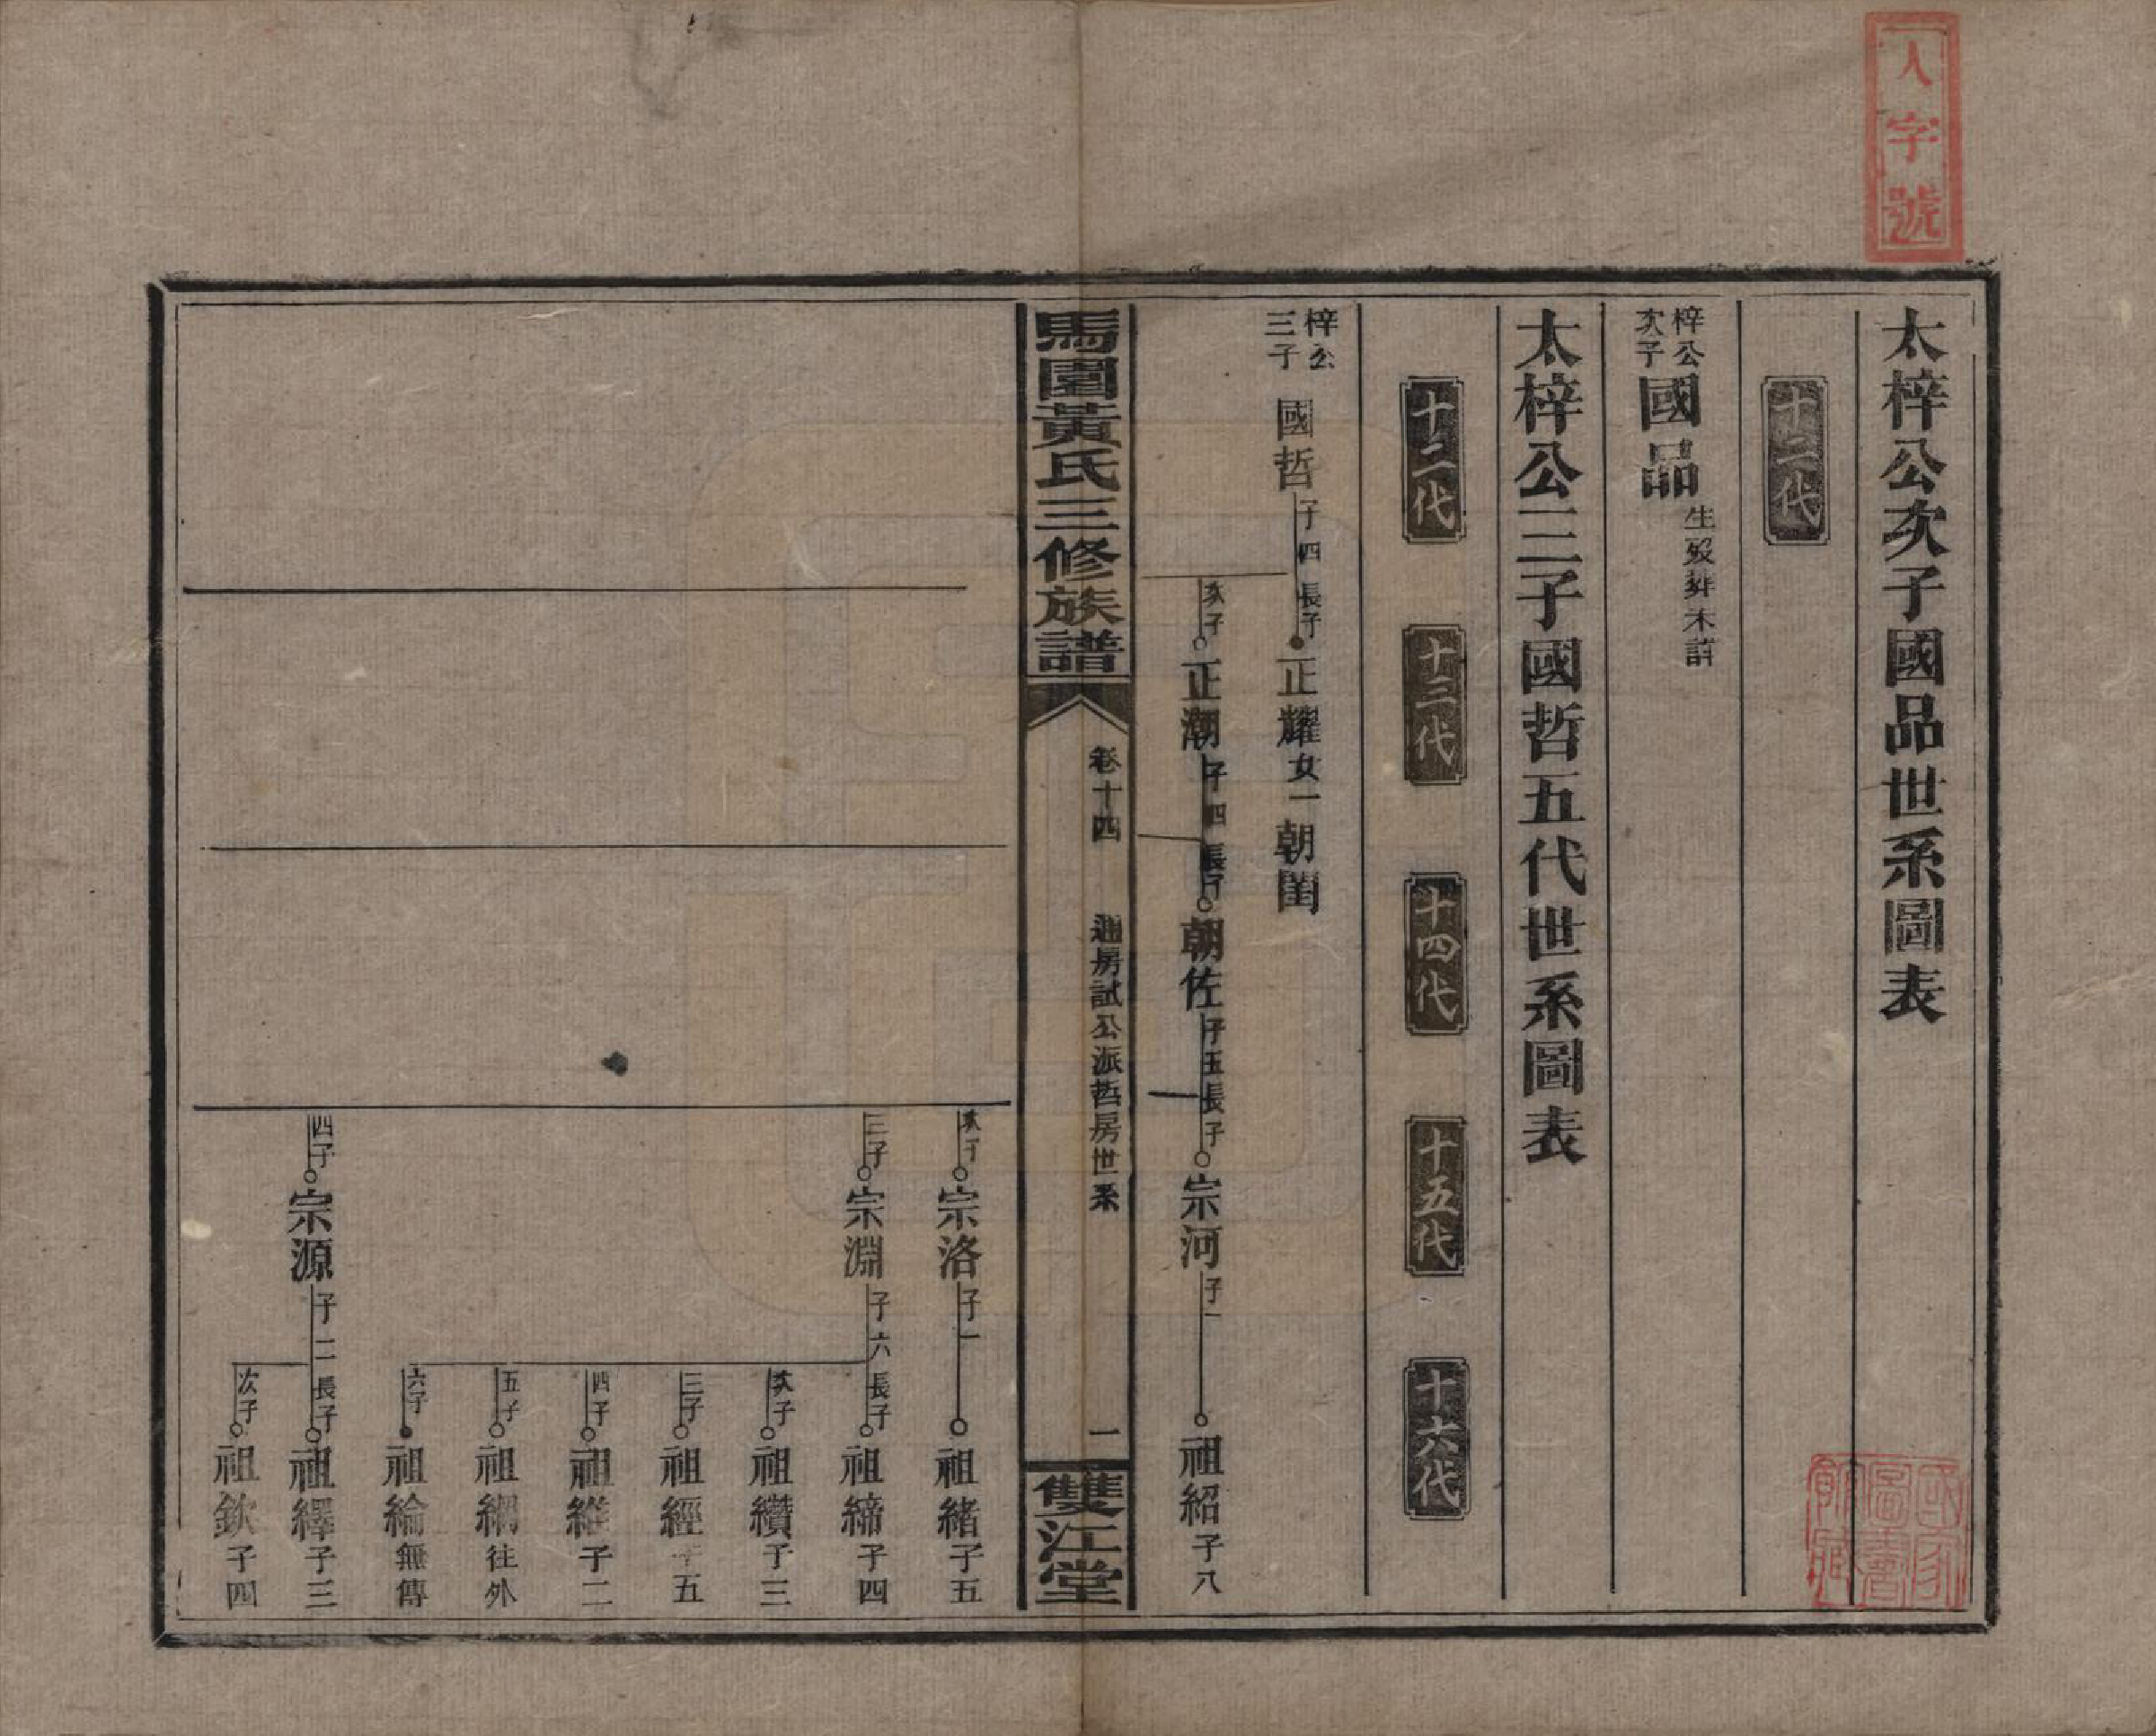 人字號
太梓公次子國品世系圖表
十二代
梓公次子
國品
生歿葬未詳
太梓公三子國哲五代世系圖表
十二代
十三代
十四代
十五代
十六代
梓公三子
國哲 子四 長子 正耀 女一 朝閨
次子 正潮 子四 長子 朝佐 子五 長子 宗河 子一 祖紹 子八
馬園黃氏三修族譜
卷十四
通房試公派哲房世系
一
雙江堂
次子 宗洛 子一 祖緒 子五
三子 宗淵 子六 長子 祖締 子四
次子 祖纘 子三
三子 祖經 子五
四子 祖維 子二
五子 祖綱 往外
六子 祖綸 無傳
四子 宗源 子二 長子 祖繹 子三
次子 祖欽 子四